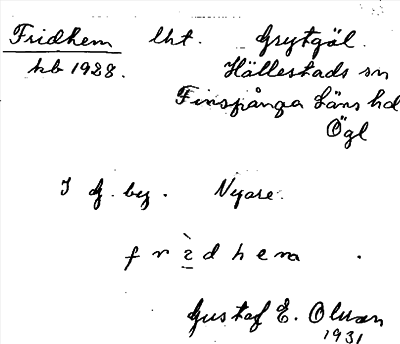 Fridhem lht. Grytgöl.
kb 1928. Hällestads sn
Finspånga läns hd
Ögl
I g. beg. Nyare.
frìdhem.
Gustaf E. Olsson
1931